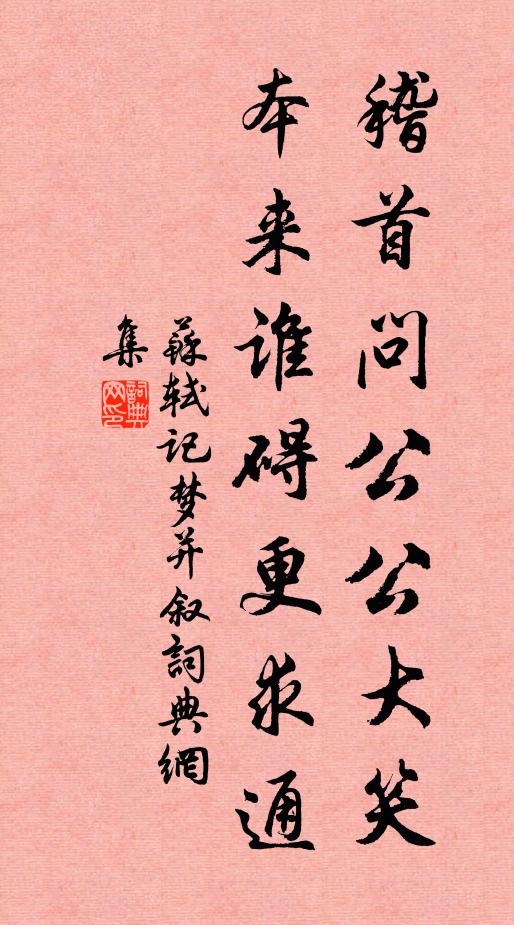 稽首问公公大笑
本来谁碍更求通
蘇軾记梦并叙詞典網
集
詞典网印